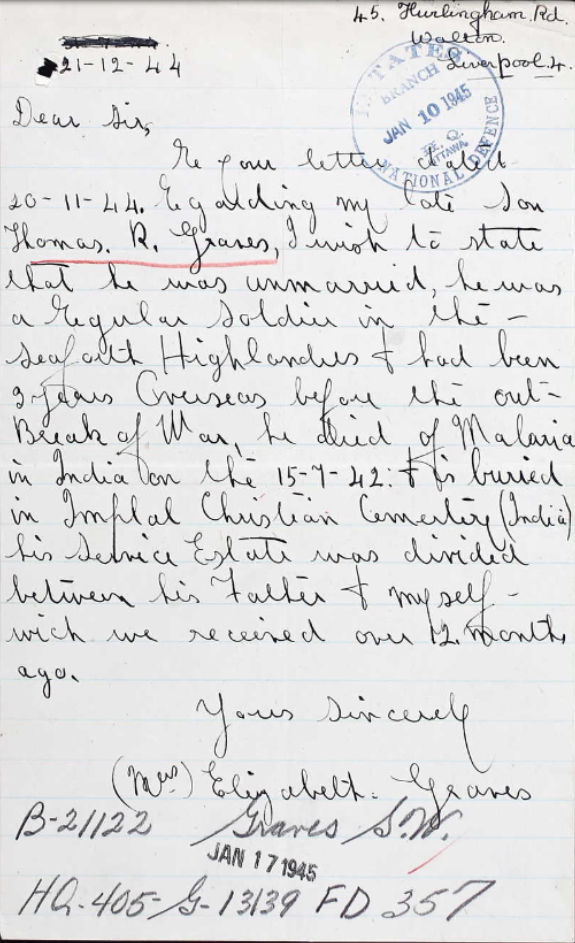 45. Hurlingham Rd.
Walton.
Liverpool. 4.
21-12-44
ESTATES
BRANCH
JAN 10 1945
OTTAWA
NATIONAL DEFENCE
Dear Sir,
Re your letter dated
20-11-44. Regalding my late Son
Thomas. R. Graves, I wish to state
that he was unmarried, he was
a Regular Soldier in the -
Seaforth Highlanders & had been
3 years Overseas before the out-
Break of War, he died of Malaria
in India on the 15-7-42. & is buried
in Imphal Christian Cemertery (India)
his Service Estate was divided
between his Father & myself -
wich we received over 12 months
ago.
Yours Sincerely
(Mrs) Elizabeth. Graves
B-21122 Graves S.W.
JAN 17 1945
HQ-405-G-13139 FD 357